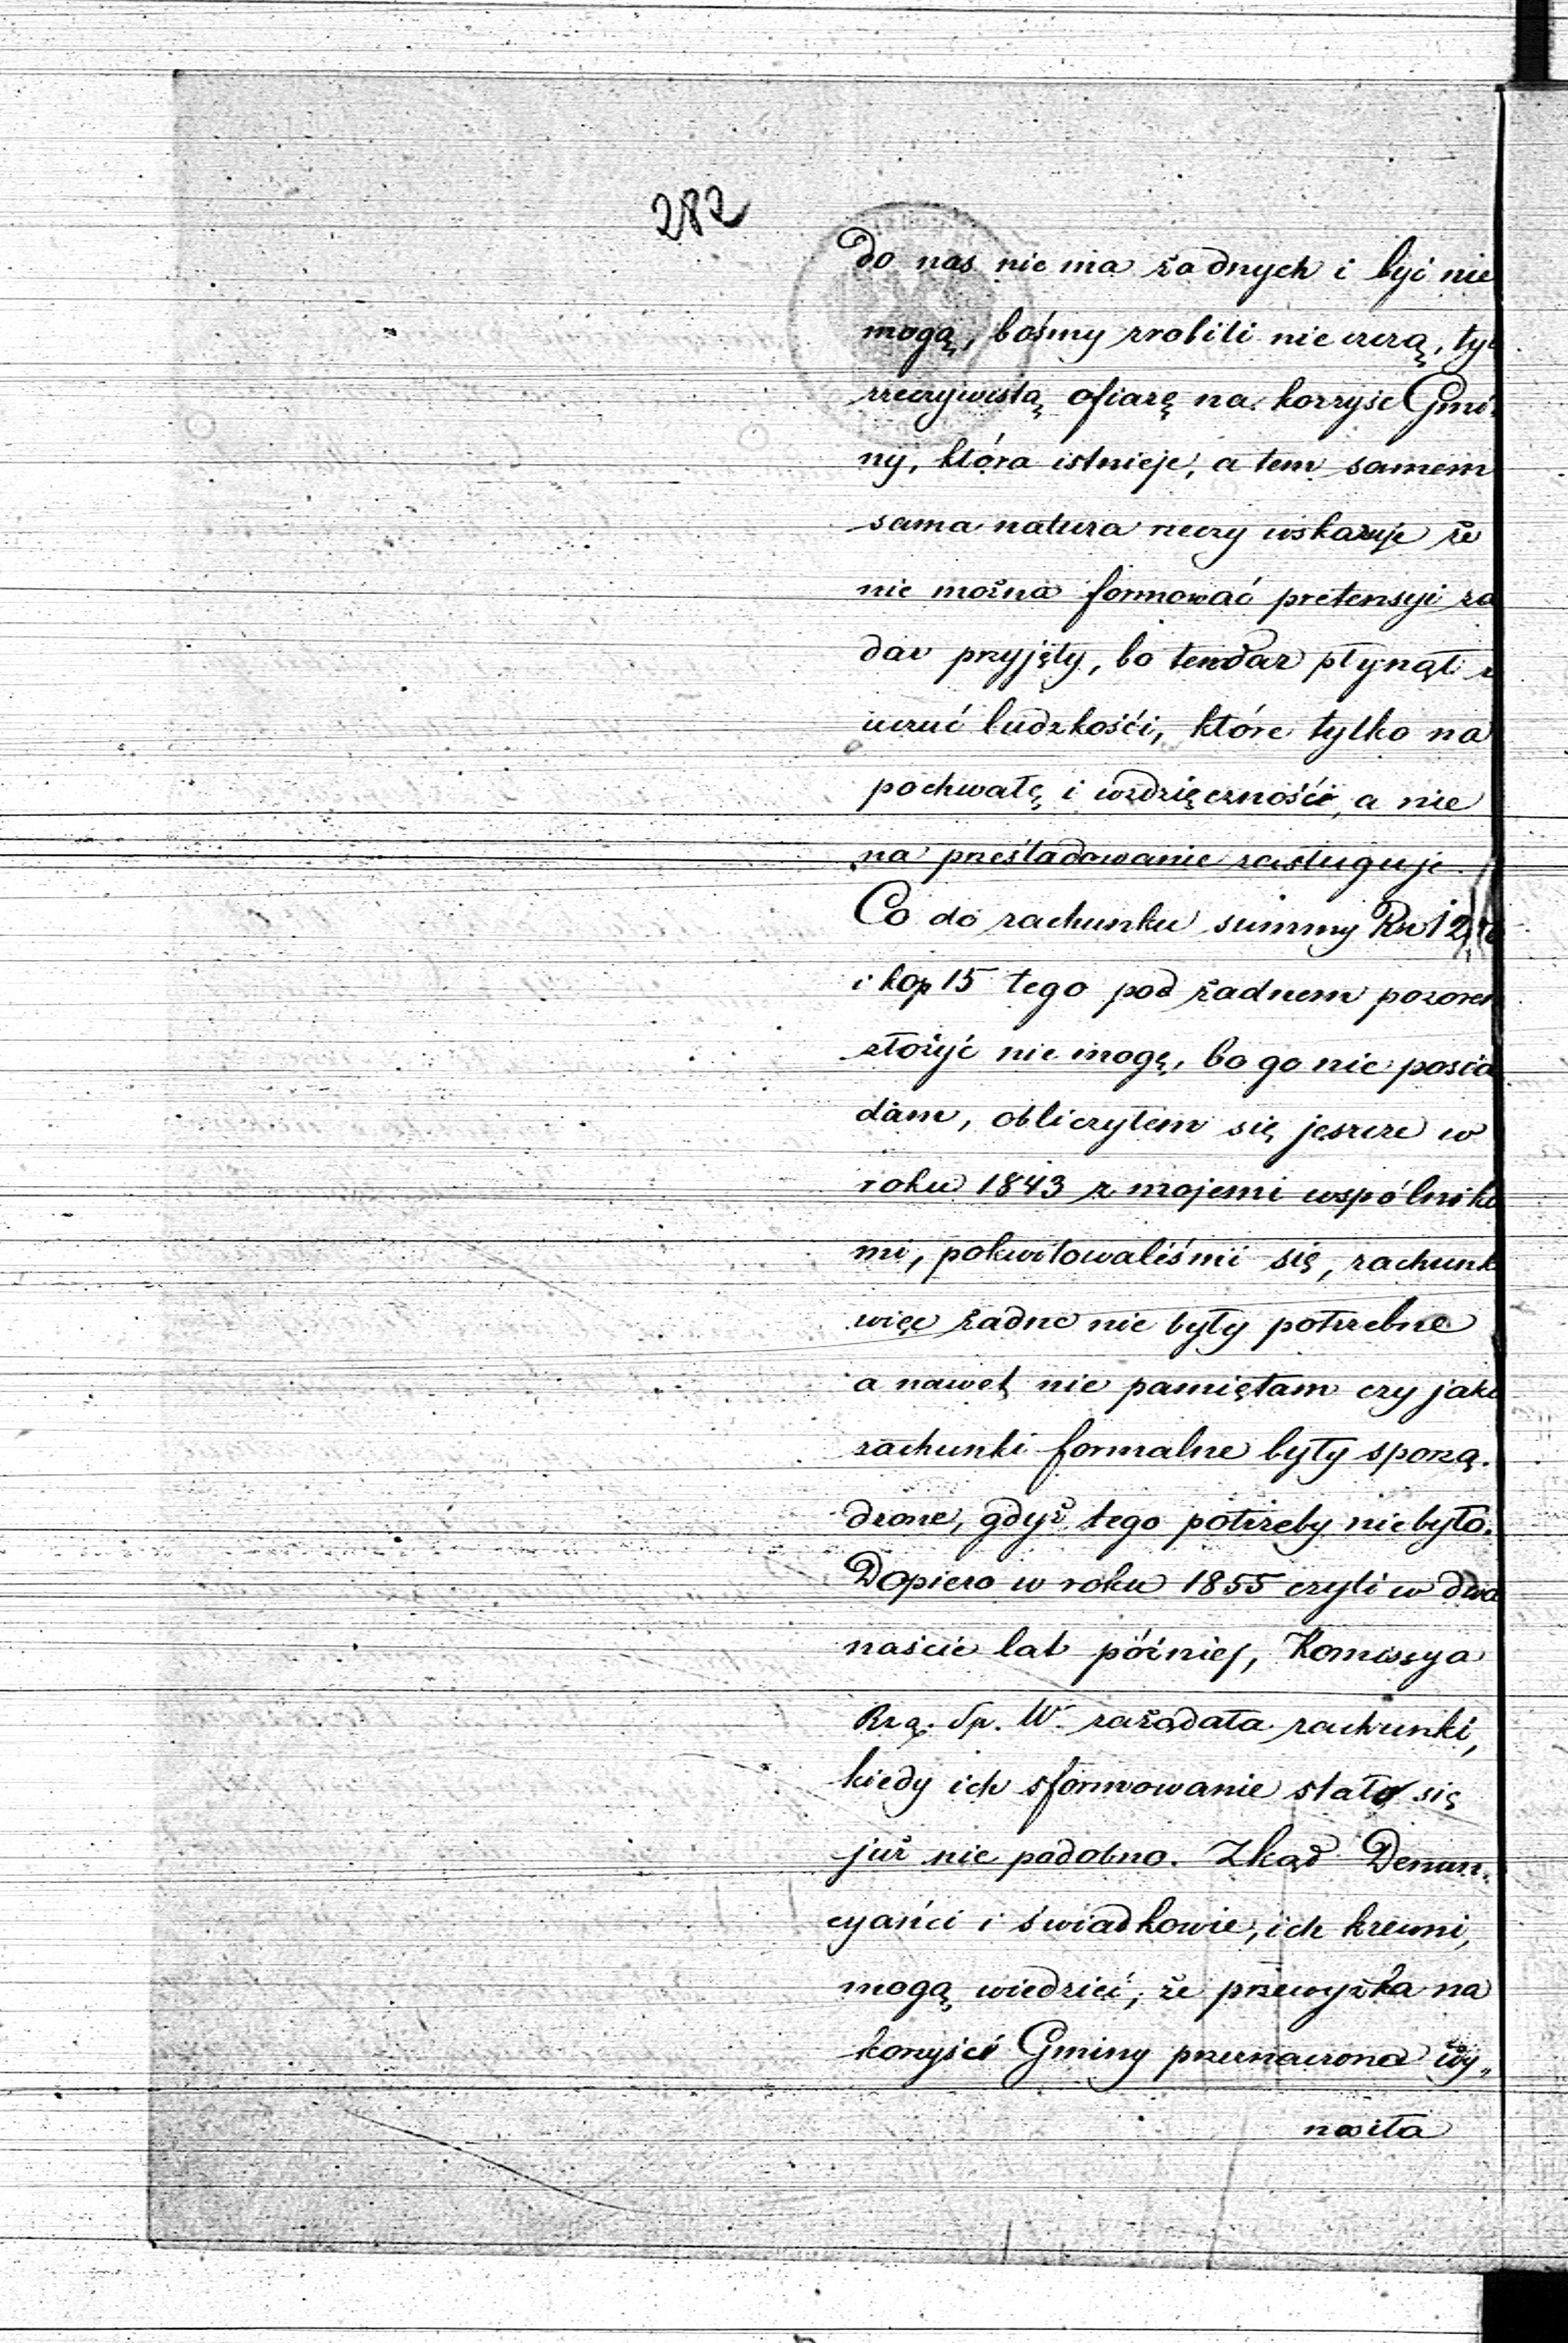 282
do nas nie ma żadnych i być nie
mogą, bośmy zrobili nie czczą, tyl
rzeczywistą ofiarę na korzyść Gmi-
ny, która istnieje, a tem samem
sama natura rzeczy wskazuje że
nie można formować pretensyi za
dar przyjęty, bo ten dar płynął z
uczuć ludzkości, które tylko na
pochwałę i wdzięczność, a nie
na prześladowanie zasługuje.
Co do rachunku summy Rs
i kop 15 tego pod żadnem pozorem
złożyć nie mogę, bo go nie posia
dam, obliczyłem się jeszcze w
roku 1843 z mojemi wspólnika
mi, pokwitowaliśmi się, rachunk
więc żadne nie były potrzebne
a nawet nie pamiętam czy jaki
rachunki formalne były sporzą-
dzone, gdyż tego potrzeby niebyło.
Dopiero w roku 1855 czyli w dwa
naście lat później, Komissya
Rzą. Sp. W. zażądała rachunki,
kiedy ich sformowanie stało się
już nie podobno. Zkąd Denun-
cyańci i świadkowie, ich krewni,
mogą wiedzieć, że przewyżka na
korzyść Gminy przeznaczona wy„
nosiła